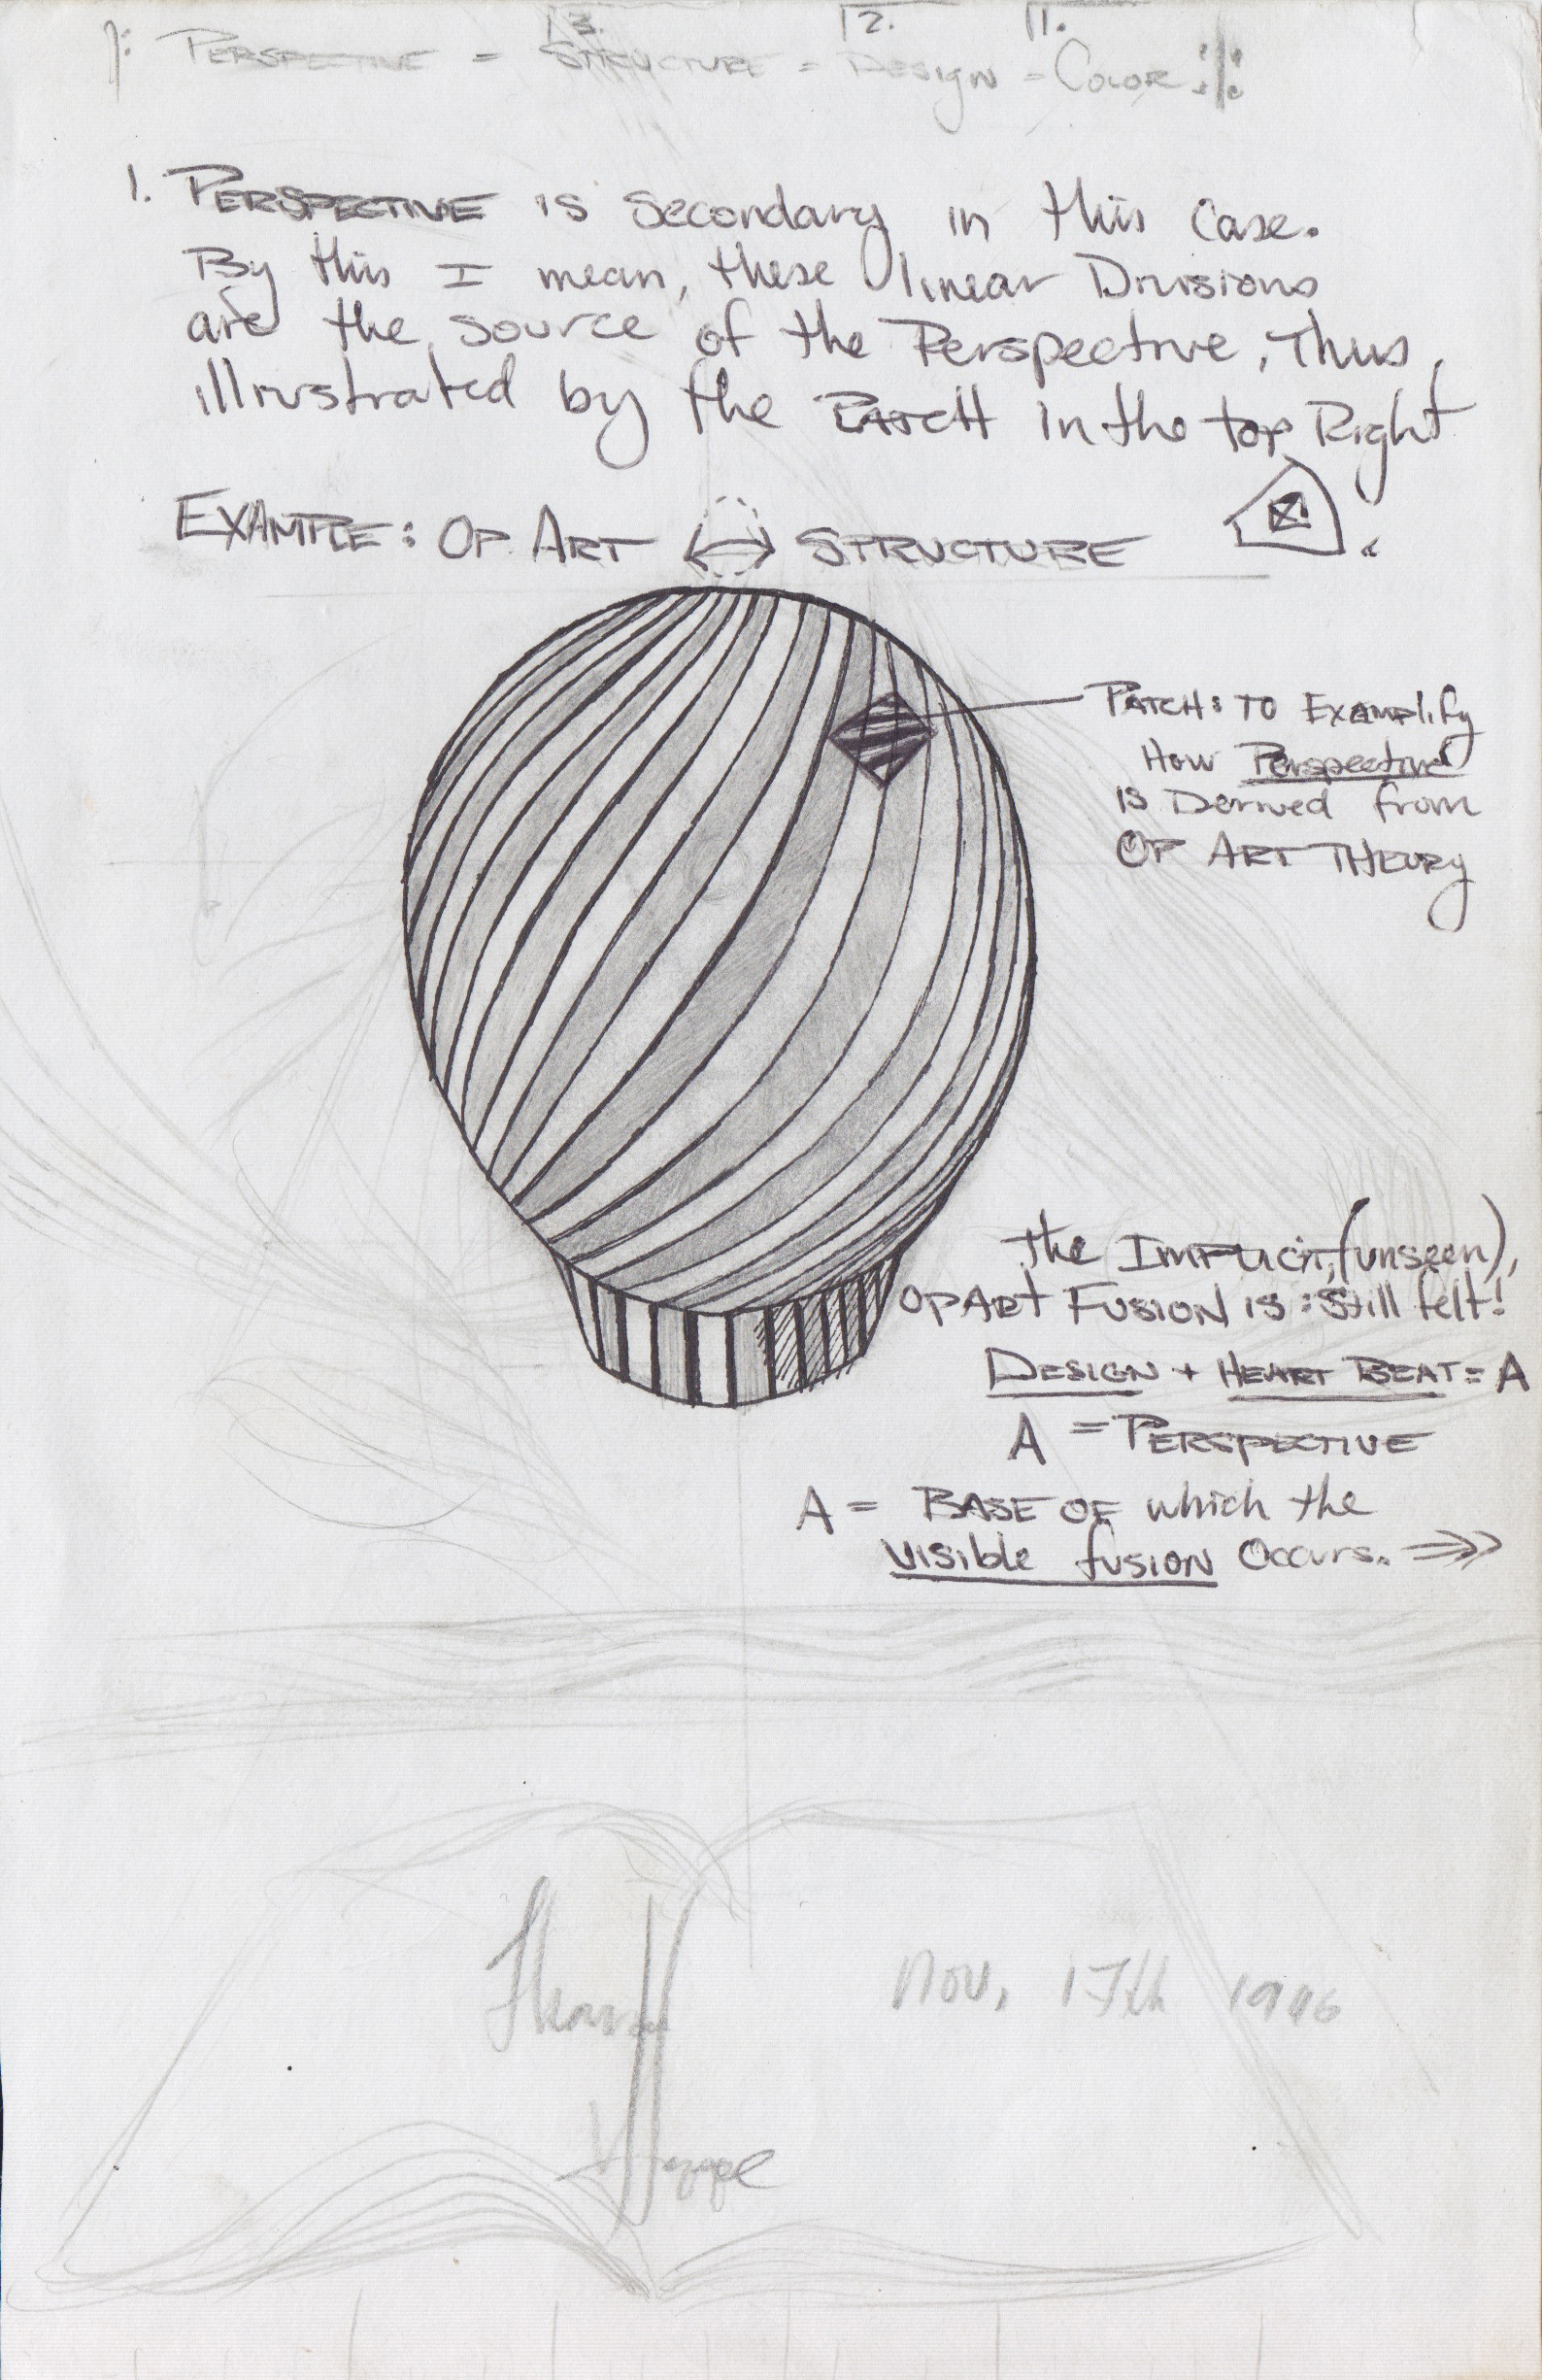 13. 12. 11.
1: PERSPECTIVE = STRUCTURE = DESIGN = COLOR
1. PERSPECTIVE is secondary in this case.
By this I mean, these linear Divisions
are the source of the Perspective, Thus,
illustrated by the PATCH in the top Right
EXAMPLE: OP ART STRUCTURE
PATCH: TO EXAMPLify
How Perspective
is Derived from
OP ART THEORY
the IMPLICIT, (unseen),
OP ART FUSION is: still felt!
DESIGN + HEART BEAT = A
A = PERSPECTIVE
A = BASE OF which the
visible fusion Occurs.
Nov, 17th 1996